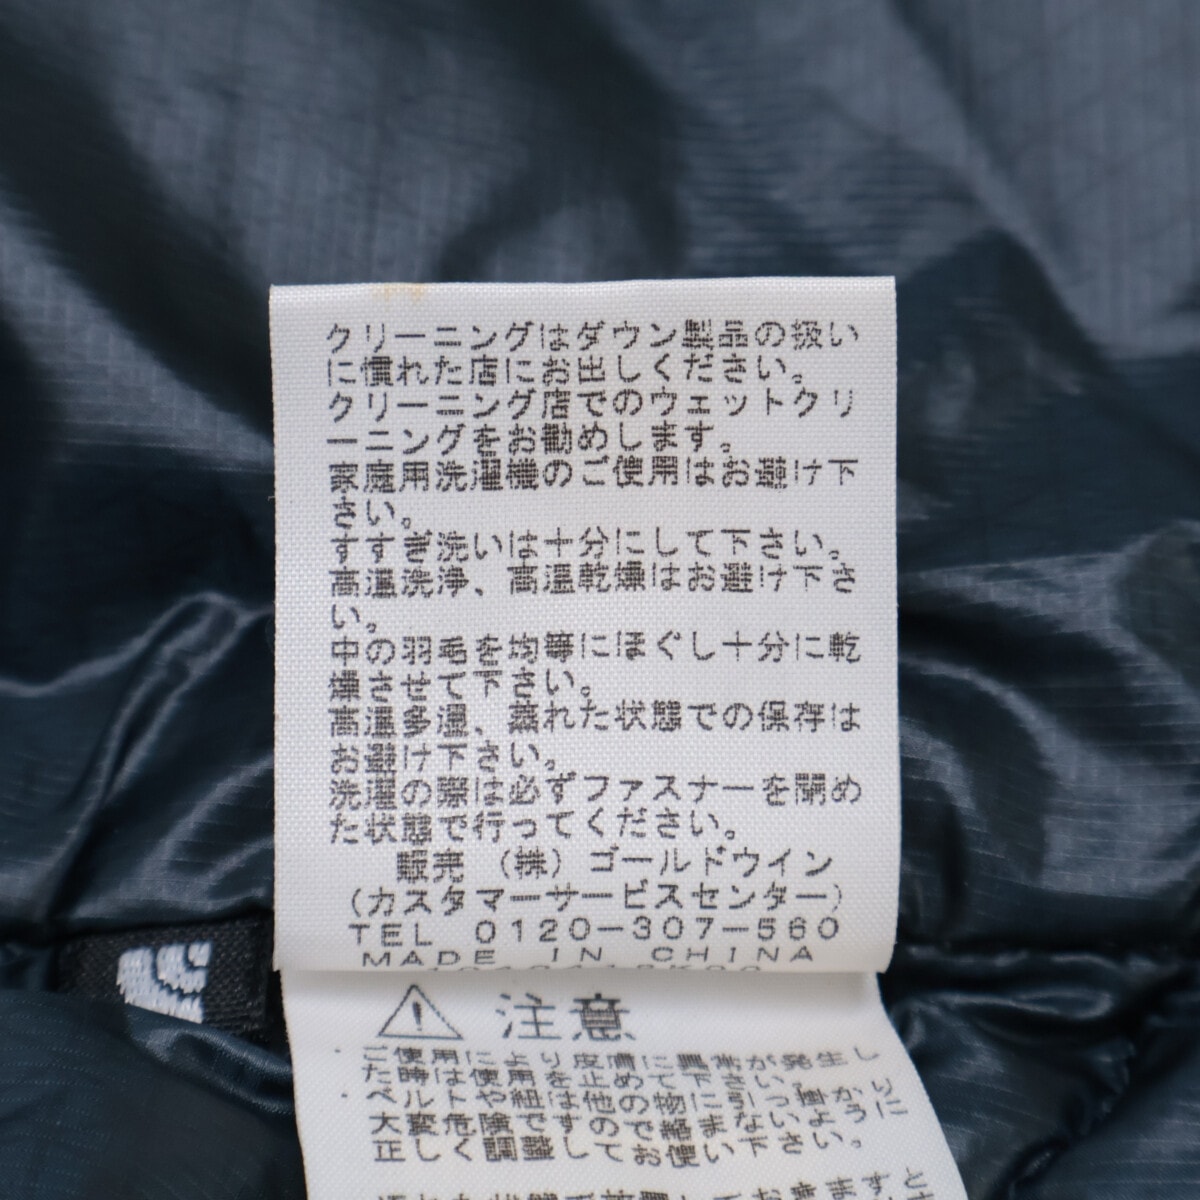 クリーニングはダウン製品の扱い
に慣れた店にお出しください。
クリーニング店でのウェットクリ
ーニングをお勧めします。
家庭用洗濯機のご使用はお避け下
さい。
すすぎ洗いは十分にして下さい。
高温洗浄、高温乾燥はお避け下さ
い。
中の羽毛を均等にほぐし十分に乾
燥させて下さい。
高温多湿、蒸れた状態での保存は
お避け下さい。
洗濯の際は必ずファスナーを閉め
た状態で行ってください。
販売 (株) ゴールドウイン
(カスタマーサービスセンター)
TEL 0120-307-560
MADE IN CHINA
注意
ご使用により皮膚に異常が発生し
た時は使用を止めて下さい。
ベルトや紐は他の物に引っ掛かり
大変危険ですので絶対ないように
正しく調整してお使い下さい。